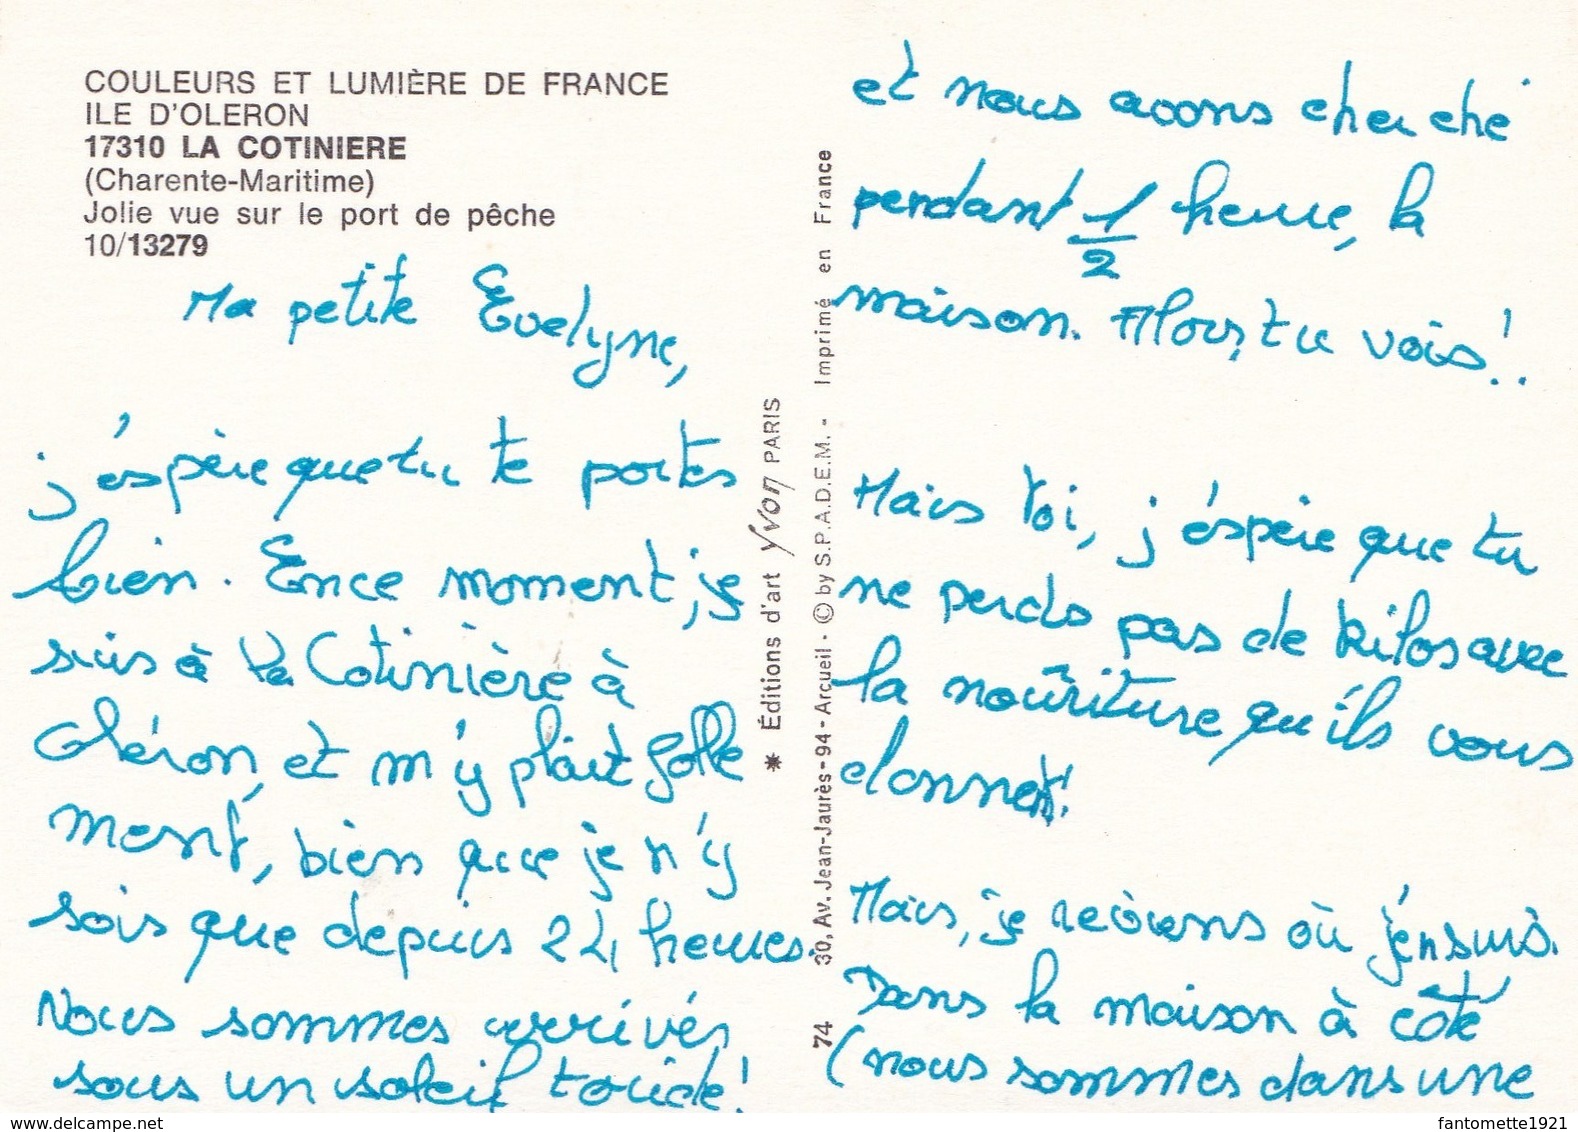 COULEURS ET LUMIÈRE DE FRANCE
ILE D'OLERON
17310 LA COTINIERE
(Charente-Maritime)
Jolie vue sur le port de pêche
10/13279
Ma petite Evelyne,
j'éspère que tu te portes
bien. En ce moment, je
suis à la Cotinière à
Oléron, et m'y plait folle
ment, bien que je n'y
sois que depuis 24 heures.
Nous sommes arrivés
sous un soleil toride!
✷ Éditions d'art Yvon PARIS
30, Av. Jean-Jaurès - 94 - Arcueil - © by S.P.A.D.E.M. - Imprimé en France
74
et nous avons cherché
pendant 1/2 heure, la
maison. Alors, tu vois!..
Mais toi, j'éspère que tu
ne perds pas de kilos avec
la nouriture qu'ils vous
donnent!
Mais, je reviens où j'en suis.
Dans la maison à côté
(nous sommes dans une
www.delcampe.net
fantomette1921